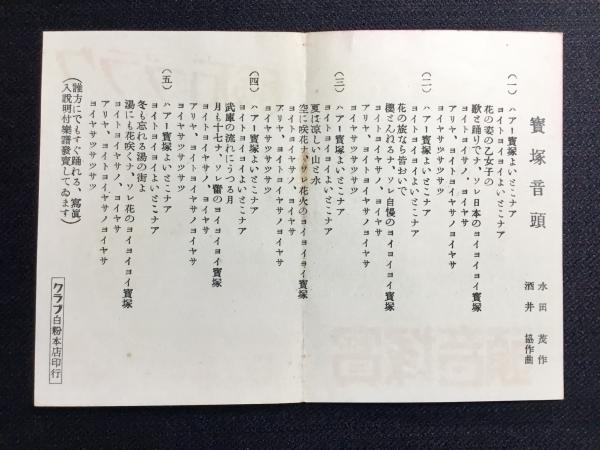 寶塚音頭
水田茂作
酒井協作曲
(一)
ハアー寶塚よいとこナア
ヨイトヨイヨイよいとこナア
花の姿の乙女子の
歌と踊りでナ、ソレ日本のヨイヨイヨイ寶塚
ヨイトヨイヤサノ、ヨイヤサ
アリヤ、ヨイトヨイヤサノヨイヤサ
ヨイヤサツサツサツ
(二)
ハアー寶塚よいとこナア
ヨイトヨイヨイよいとこナア
花の旅なら皆おいで
櫻とんねるナ、ソレ自慢のヨイヨイヨイ寶塚
ヨイトヨイヤサノ、ヨイヤサ
アリヤ、ヨイトヨイヤサノヨイヤサ
ヨイヤサツサツサツ
(三)
ハアー寶塚よいとこナア
ヨイトヨイヨイよいとこナア
夏は涼しい山と水
空に咲花ナ、ソレ花火のヨイヨイヨイ寶塚
ヨイトヨイヤサノ、ヨイヤサ
アリヤ、ヨイトヨイヤサノヨイヤサ
ヨイヤサツサツサツ
(四)
ハアー寶塚よいとこナア
ヨイトヨイヨイよいとこナア
武庫の流れにうつる月
月も十七ナ、ソレ蕾のヨイヨイヨイ寶塚
ヨイトヨイヤサノ、ヨイヤサ
アリヤ、ヨイトヨイヤサノヨイヤサ
ヨイヤサツサツサツ
(五)
ハアー寶塚よいとこナア
ヨイトヨイヨイよいとこナア
冬も忘れる湯の街よ
湯にも花咲くナ、ソレ花のヨイヨイヨイ寶塚
ヨイトヨイヤサノ、ヨイヤサ
アリヤ、ヨイトヨイヤサノヨイヤサ
ヨイヤサツサツサツ
(誰方にでもすぐ踊れる、寫眞
入說明付樂譜發賣してゐます)
クラブ白粉本店印行